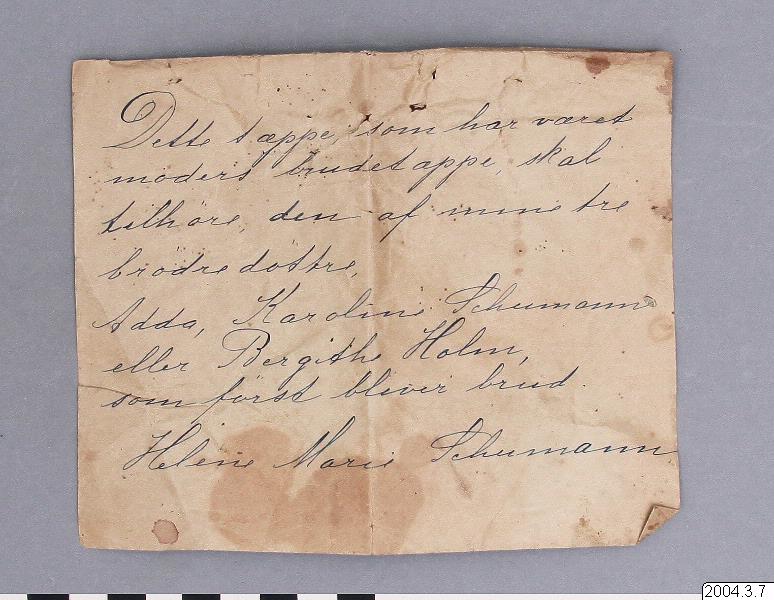 Dette tæppe, som har været
moders brudetæppe, skal
tilhöre, den af mine tre
brödredöttre,
Adda, Karoline Schumann
eller Bergithe Holm,
som först bliver brud.
Helene Marie Schumann
2004.3.7